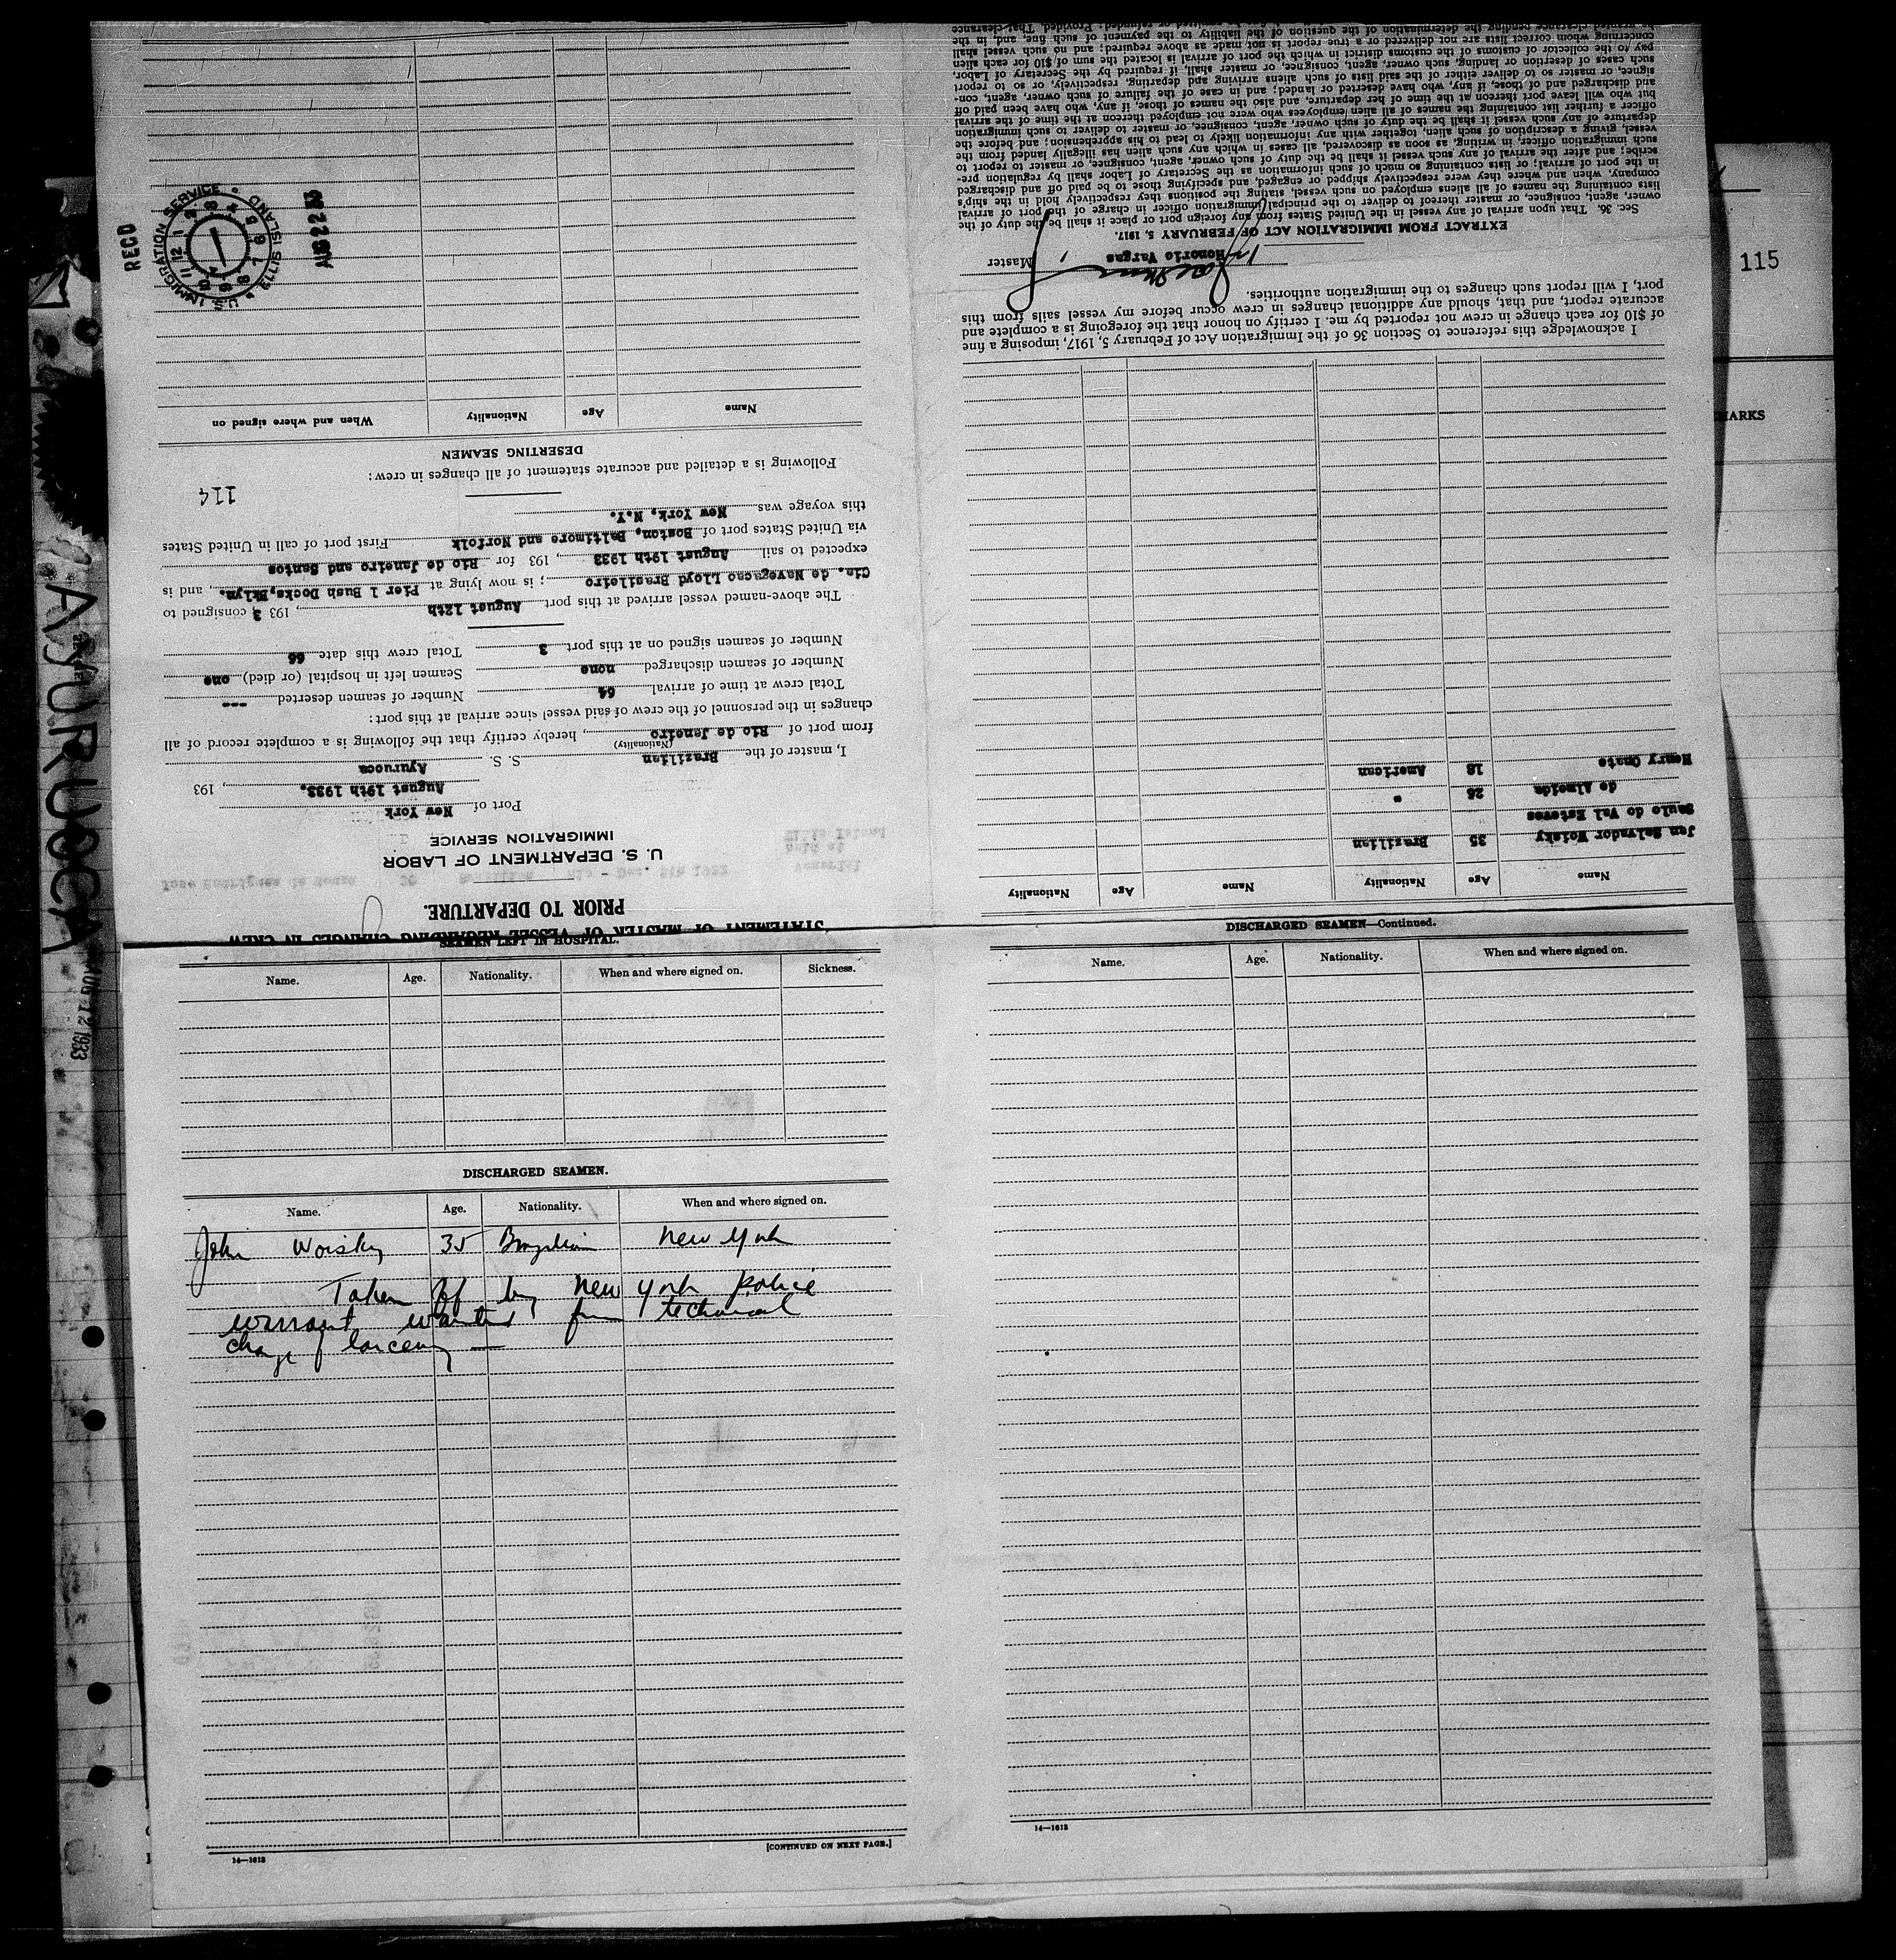 STATEMENT OF MASTER OF VESSEL REGARDING CHANGES IN CREW
PRIOR TO DEPARTURE.
U. S. DEPARTMENT OF LABOR
IMMIGRATION SERVICE
Port of New York
August 19th 1933, 193
I, master of the Brazilian S. S. Ayuruoca
(Nationality)
from port of Rio de Janeiro, hereby certify that the following is a complete record of all
changes in the personnel of the crew of said vessel since arrival at this port:
Total crew at time of arrival 64 Number of seamen deserted ---
Number of seamen discharged none Seamen left in hospital (or died) one
Number of seamen signed on at this port 3 Total crew this date 66
The above-named vessel arrived at this port August 12th, 193 3 consigned to
Cia. de Navegacao Lloyd Brasileiro; is now lying at Pier 1 Bush Docks, Bklyn., and is
expected to sail August 19th 1933, 193 for Rio de Janeiro and Santos
via United States port of Boston, Baltimore and Norfolk First port of call in United States
this voyage was New York, N.Y.
114
Following is a detailed and accurate statement of all changes in crew:
DESERTING SEAMEN
Name Age Nationality When and where signed on
RECD
U.S. IMMIGRATION SERVICE
ELLIS ISLAND
AUG 22 33
Name Age Nationality Name Age Nationality
Jon Salvador Woisky 35 Brazilian
Saulo do Val Esteves
de Almeida 26 "
Henry Onate 18 American
I acknowledge this reference to Section 36 of the Immigration Act of February 5, 1917, imposing a fine
of $10 for each change in crew not reported by me. I certify on honor that the foregoing is a complete and
accurate report, and that, should any additional changes in crew occur before my vessel sails from this
port, I will report such changes to the immigration authorities.
Honorio Vargas Master
EXTRACT FROM IMMIGRATION ACT OF FEBRUARY 5, 1917.
Sec. 36. That upon arrival of any vessel in the United States from any foreign port or place it shall be the duty of the
owner, agent, consignee, or master thereof to deliver to the principal immigration officer in charge of the port of arrival
lists containing the names of all aliens employed on such vessel, stating the positions they respectively hold in the ship's
company, when and where they were respectively shipped or engaged, and specifying those to be paid off and discharged
in the port of arrival; or lists containing so much of such information as the Secretary of Labor shall by regulation pre-
scribe; and after the arrival of any such vessel it shall be the duty of such owner, agent, consignee, or master to report to
such immigration officer, in writing, as soon as discovered, all cases in which any such alien has illegally landed from the
vessel, giving a description of such alien, together with any information likely to lead to his apprehension; and before the
departure of any such vessel it shall be the duty of such owner, agent, consignee, or master to deliver to such immigration
officer a further list containing the names of all alien employees who were not employed thereon at the time of the arrival
but who will leave port thereon at the time of her departure, and also the names of those, if any, who have been paid off
and discharged and of those, if any, who have deserted or landed; and in case of the failure of such owner, agent, con-
signee, or master so to deliver either of the said lists of such aliens arriving and departing, respectively, or so to report
such cases of desertion or landing, such owner, agent, consignee, or master shall, if required by the Secretary of Labor,
pay to the collector of customs of the customs district in which the port of arrival is located the sum of $10 for each alien
concerning whom correct lists are not delivered or a true report is not made as above required; and no such vessel shall
be granted clearance pending the determination of the question of the liability to the payment of such fine, and, in the
SEAMEN LEFT IN HOSPITAL.
Name. Age. Nationality. When and where signed on. Sickness.
DISCHARGED SEAMEN.
Name. Age. Nationality. When and where signed on.
John Woisky 35 Brazilian New York
Taken off by New York police
warrant wanted for technical
charge of larceny —
14—1613
[CONTINUED ON NEXT PAGE.]
DISCHARGED SEAMEN—Continued.
Name. Age. Nationality. When and where signed on.
14—1613
AYURUOCA
AUG 12 1933
115
MARKS